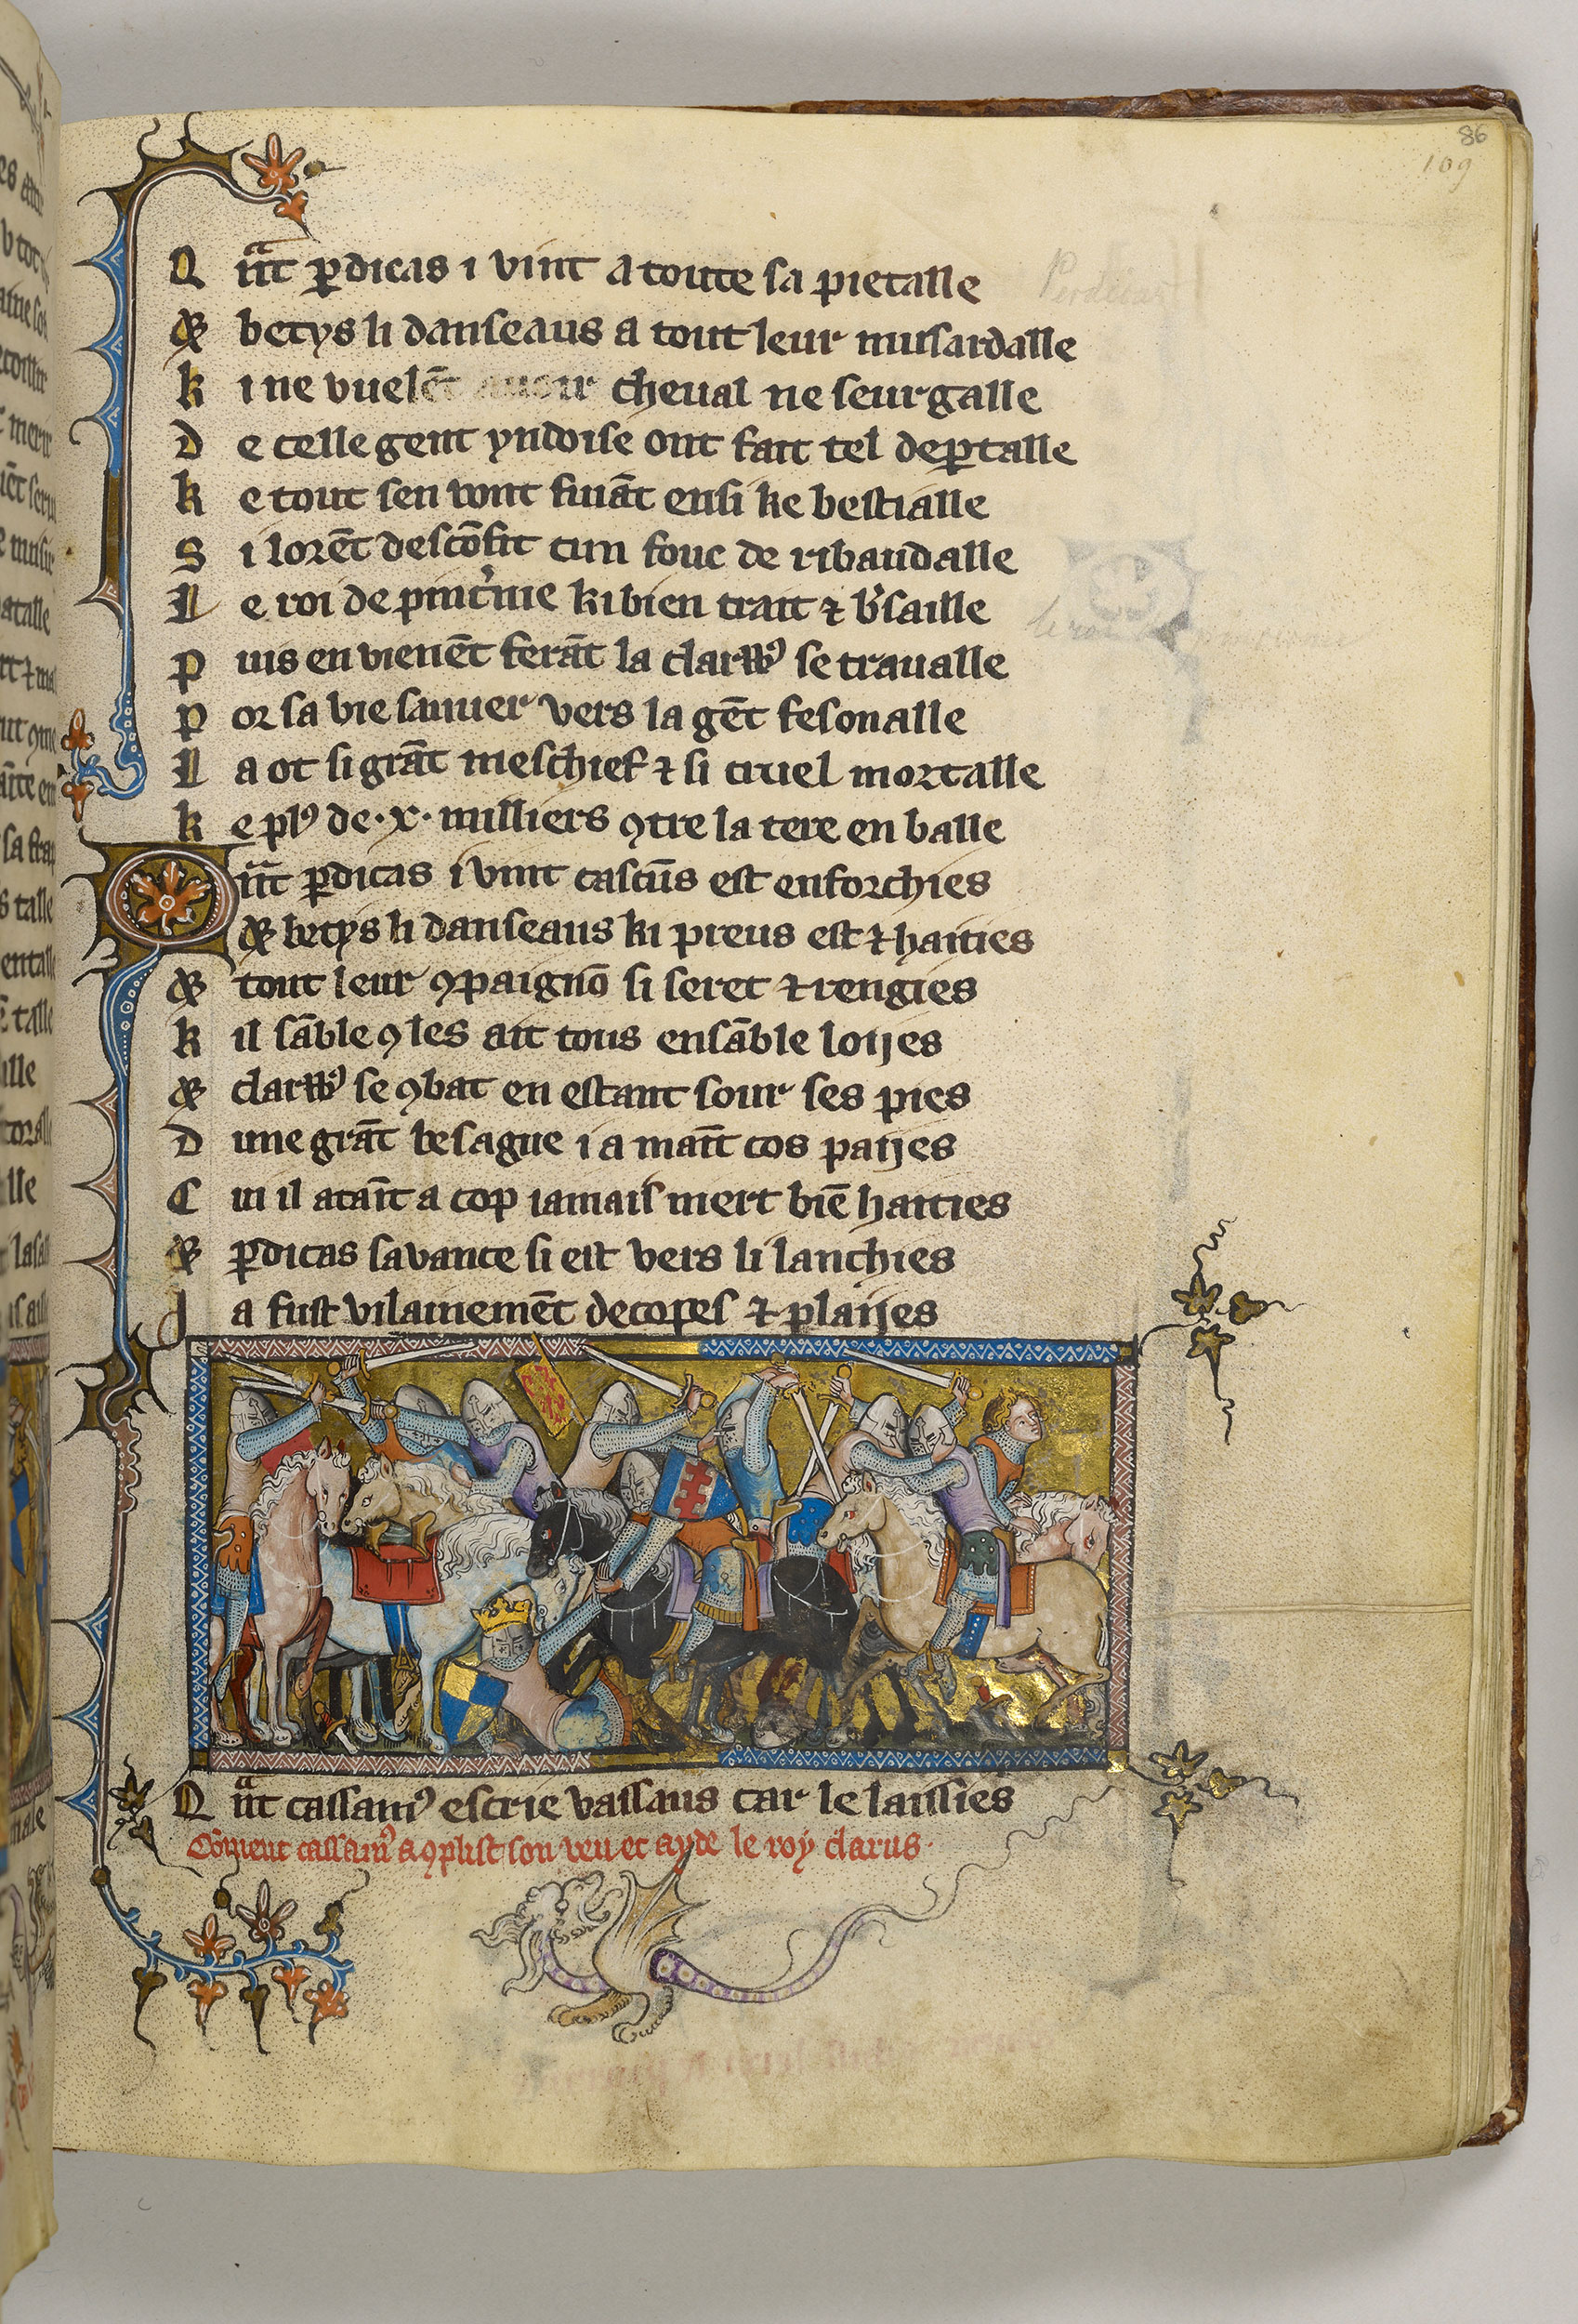 86
109
Q ñt p̱dicas i vint a toute sa pietalle
Perdicas
& betys li danseaus a tout leur musardalle
k i ne vuelēt auoir cheual ne seurgalle
D e celle gent yndoise ont fait tel dep̱talle
k e tout sen vont fuiāt ensi ke bestialle
S i lorēt descōfit cun fouc de ribaudalle
L e roi de pinc̓nie ki bien trait ⁊ b̓saille
P uis en vienēt ferāt la clarꝰ se traualle
P or sa vie sauuer vers la gēt fesonalle
L a ot si grāt meschief ⁊ si cruel mortalle
k e plꝰ de ·x· milliers ꝯtre la tere en balle
Q ñt p̱dicas i vint cascūs est enforchies
& betys li danseaus ki preus est ⁊ haities
& tout leur ꝯpaignō si seret ⁊ rengies
k il sāble ꝯ les ait tous ensāble loijes
& clarꝰ se ꝯbat en estant sour ses pies
D une grāt besague i a maīt cos paijes
C ui il ataīt a cop iamais niert biē haities
& p̱dicas savance si est vers li lanchies
J a fust vilainemēt decopes ⁊ plaijes
Q ñt cassamꝰ escrie vassaus car le laissies
Cōment cassamꝰ aꝯplist son veu et ayde le roy clarus·